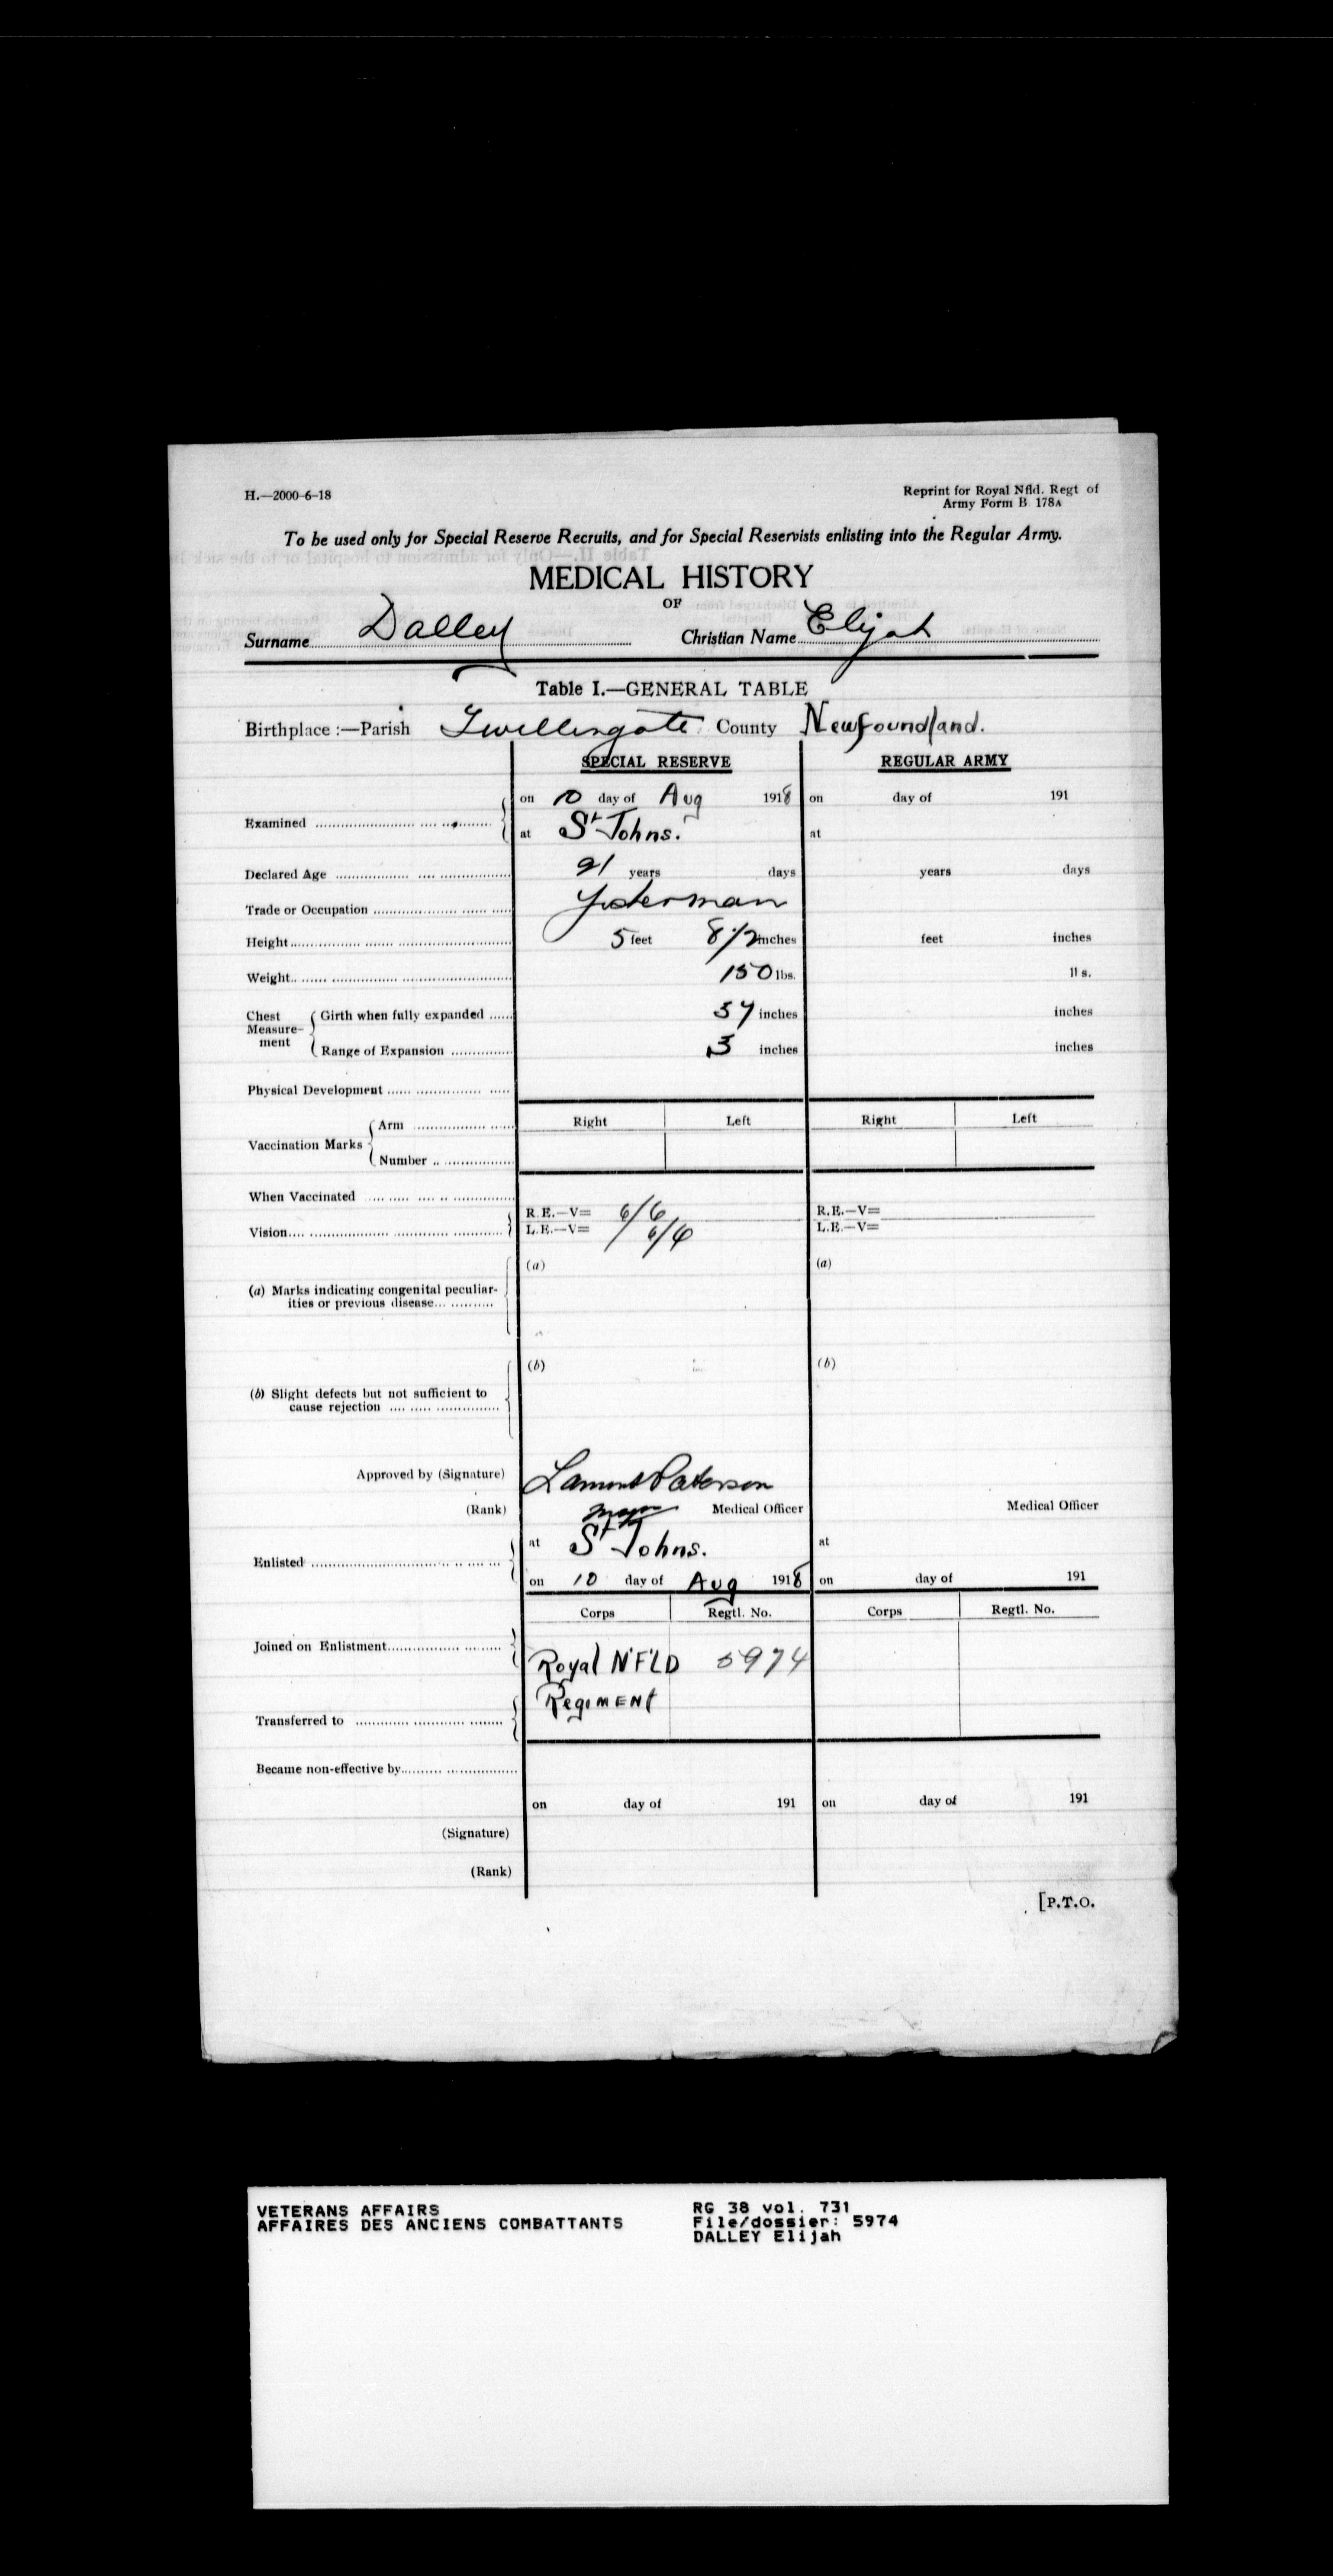 H.—2000-6-18
Reprint for Royal Nfld. Regt of
Army Form B 178A
To be used only for Special Reserve Recruits, and for Special Reservists enlisting into the Regular Army.
MEDICAL HISTORY
OF
Surname Dalley Christian Name Elijah
Table I.—GENERAL TABLE
Birthplace :—Parish Twillingate County Newfoundland.
SPECIAL RESERVE REGULAR ARMY
on 10 day of Aug 1918 on day of 191
Examined
at St Johns. at
Declared Age 21 years days years days
Trade or Occupation Fisherman
Height 5 feet 8 1/2 inches feet inches
Weight 150 lbs. lbs.
Chest Measurement Girth when fully expanded 37 inches inches
Range of Expansion 3 inches inches
Physical Development
Right Left Right Left
Vaccination Marks Arm
Number
When Vaccinated
Vision R.E.—V= 6/6 R.E.—V=
L.E.—V= 6/6 L.E.—V=
(a) (a)
(a) Marks indicating congenital peculiar-
ities or previous disease
(b) (b)
(b) Slight defects but not sufficient to
cause rejection
Approved by (Signature) Lamont Paterson
(Rank) Major Medical Officer Medical Officer
Enlisted at St Johns. at
on 10 day of Aug 1918 on day of 191
Corps Regtl. No. Corps Regtl. No.
Joined on Enlistment Royal NFLD 5974
Regiment
Transferred to
Became non-effective by
on day of 191 on day of 191
(Signature)
(Rank)
[P.T.O.
VETERANS AFFAIRS RG 38 vol. 731
AFFAIRES DES ANCIENS COMBATTANTS File/dossier: 5974
DALLEY Elijah